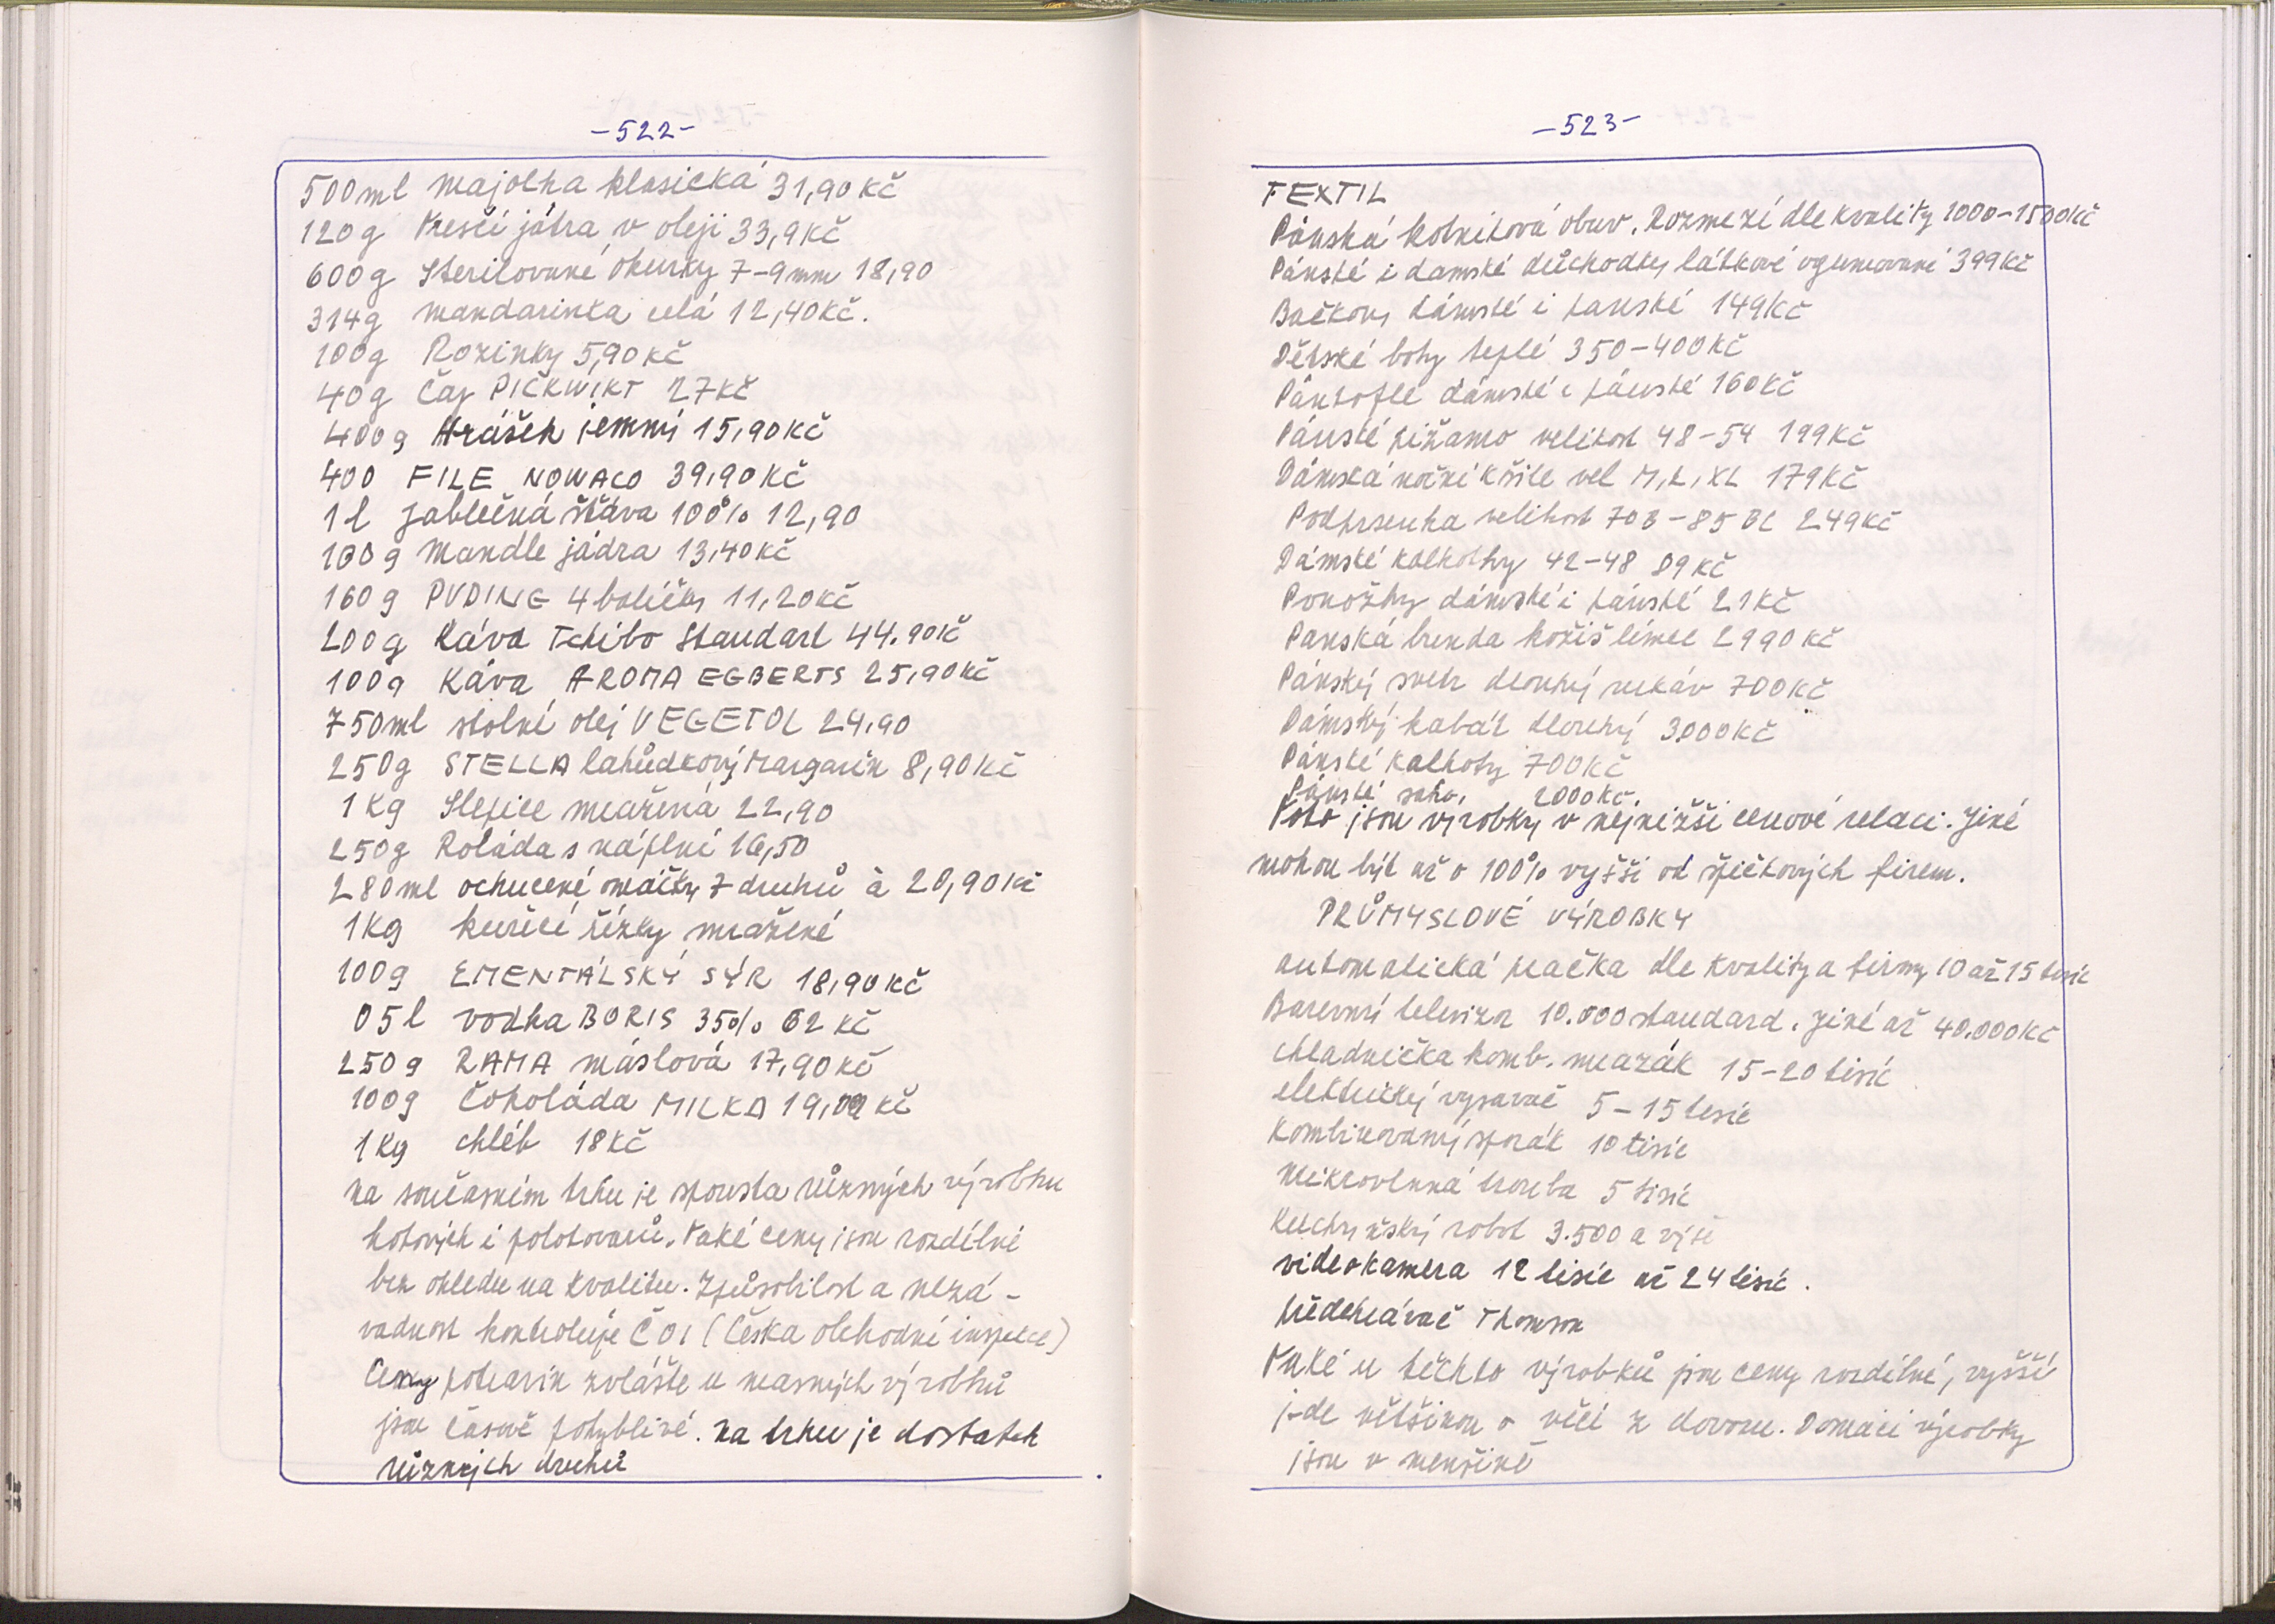 -522-
500ml majolka klasická 31,90 Kč
120g Tresčí játra v oleji 33,9 Kč
600g Sterilované okurky 7-9mm 18,90
314g mandarinka celá 12,40 Kč.
100g Rozinky 5,90 Kč
40g Čaj PIČKWIKT 27 Kč
400g Hrášek jemný 15,90 Kč
400 FILE NOWACO 39,90 Kč
1 l jablečná šťáva 100% 12,90
100g Mandle jádra 13,40 Kč
160g PUDING 4 balíčky 11,20 Kč
200g Káva Tchibo Standart 44.90 Kč
100g Káva AROMA EGBERTS 25,90 Kč
750ml stolní olej VEGETOL 24,90
250g STELLA lahůdkový Margarín 8,90 Kč
1 Kg Slepice mražená 22,90
250g Roláda s náplní 16,50
280ml ochucené omáčky 7 druhů à 20,90 Kč
1 Kg kuřecí řízky mražené
100g EMENTÁLSKÝ SÝR 18,90 Kč
05 l vodka BORIS 35% 62 Kč
250g RAMA máslová 17,90 Kč
100g Čokoláda MILKA 19, Kč
1 Kg chléb 18 Kč
na současném trhu je spousta různých výrobku
hotových i polotovarů. Také ceny jsou rozdílné
bez ohledu na kvalitu. Způsobilost a nezá-
vadnost kontroluje ČOI (Česka obchodní inspekce)
Ceny potravin zvláště u masných výrobků
jsou časově pohyblivé. na trhu je dostatek
různých druhů
-523-
TEXTIL
Pánská kotníková obuv. Rozmezí dle kvality 1000-1500 Kč
Pánské i damské důchodky látkové vgumované 399 Kč
Bačkory dámské i panské 149 Kč
Dětské boty teplé 350-400 Kč
Pantofle dámské i pánské 160 Kč
Pánské pižamo velikost 48-54 199 Kč
Dámská noční košile vel M,L,XL 179 Kč
Podprsenka velikost 70B-85BC 249 Kč
Dámské kalhotky 42-48 89 Kč
Ponožky dámské i pánské 21 Kč
Panská bunda kožiš límec 2990 Kč
Pánský svetr dlouhý rukáv 700 Kč
Dámský kabát dlouhý 3000 Kč
Pánské kalhoty 700 Kč
Pánské sako. 2000 Kč.
Toto jsou výrobky v nejnižší cenové relaci. Jiné
mohou být až o 100% vyšší od špičkových firem.
PRŮMYSLOVÉ VÝROBKY
automatická pračka dle kvality a firmy 10 až 15 tisíc
Barevný televizor 10.000 standard. Jiné až 40.000 Kč
chladnička komb. mrazák 15-20 tisíc
elektrický vysavač 5-15 tisíc
Kombinovaný sporák 10 tisíc
Mikrovlnná trouba 5 tisíc
Kuchyňský robot 3.500 a výše
videokamera 12 tisíc až 24 tisíc.
předehrávač Thomson
Také u těchto výrobků jsou ceny rozdílné, vyšší
jde většinou o věci z dovozu. Domácí výrobky
jsou v menšině